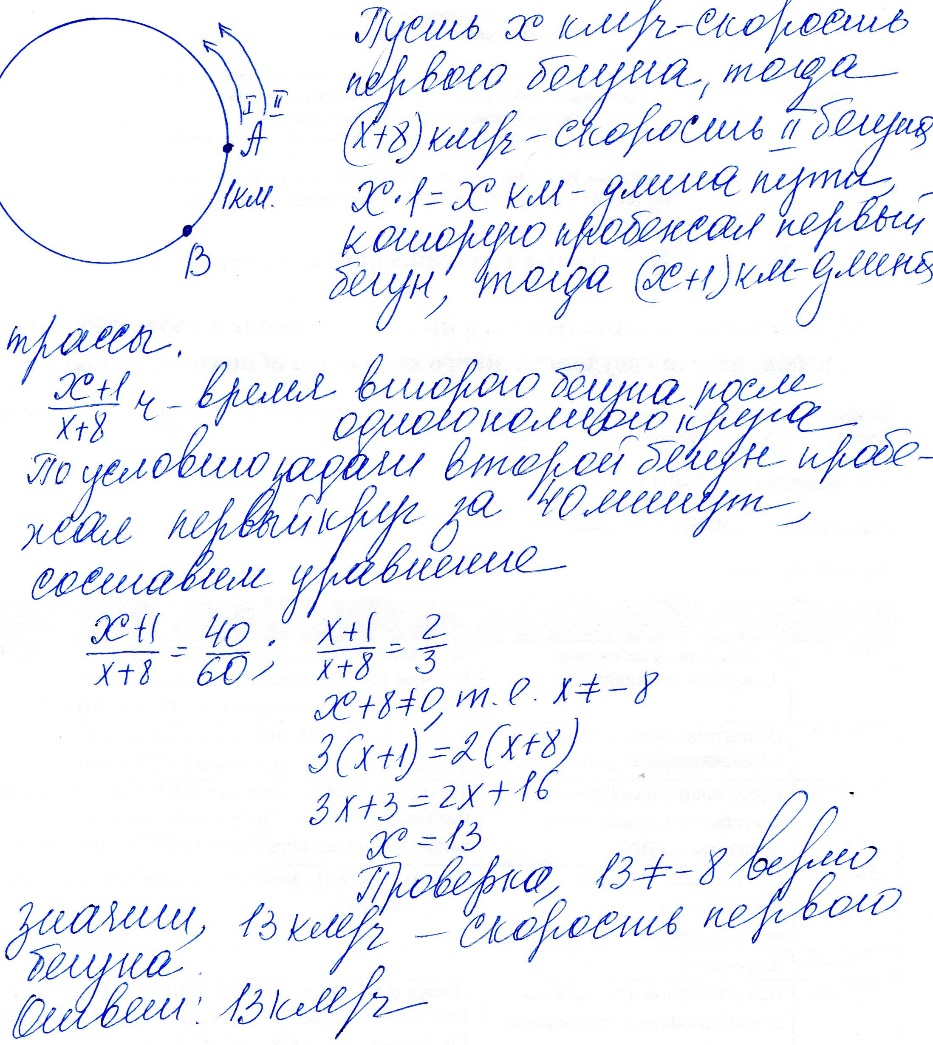 Пусть x км/ч-скорость
первого бегуна, тогда
(x+8) км/ч - скорость II бегуна
I II
A
x·1=x км - длина пути,
1км.
которую пробежал первый
B
бегун, тогда (x+1) км-длина
трассы.
x+1/x+8 ч - время второго бегуна после
одного полного круга
По условию задачи второй бегун пробе-
жал первый круг за 40 минут,
составим уравнение
x+1/x+8 = 40/60; x+1/x+8 = 2/3
x+8≠0, т.е. x≠-8
3(x+1)=2(x+8)
3x+3=2x+16
x=13
Проверка, 13≠-8 верно
значит, 13 км/ч - скорость первого
бегуна.
Ответ: 13 км/ч